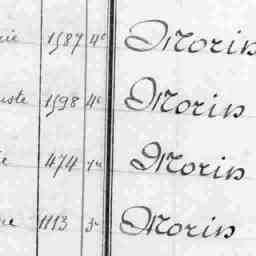 1587 4e Morin
1598 4e Morin
474 Morin
1113 3e Morin